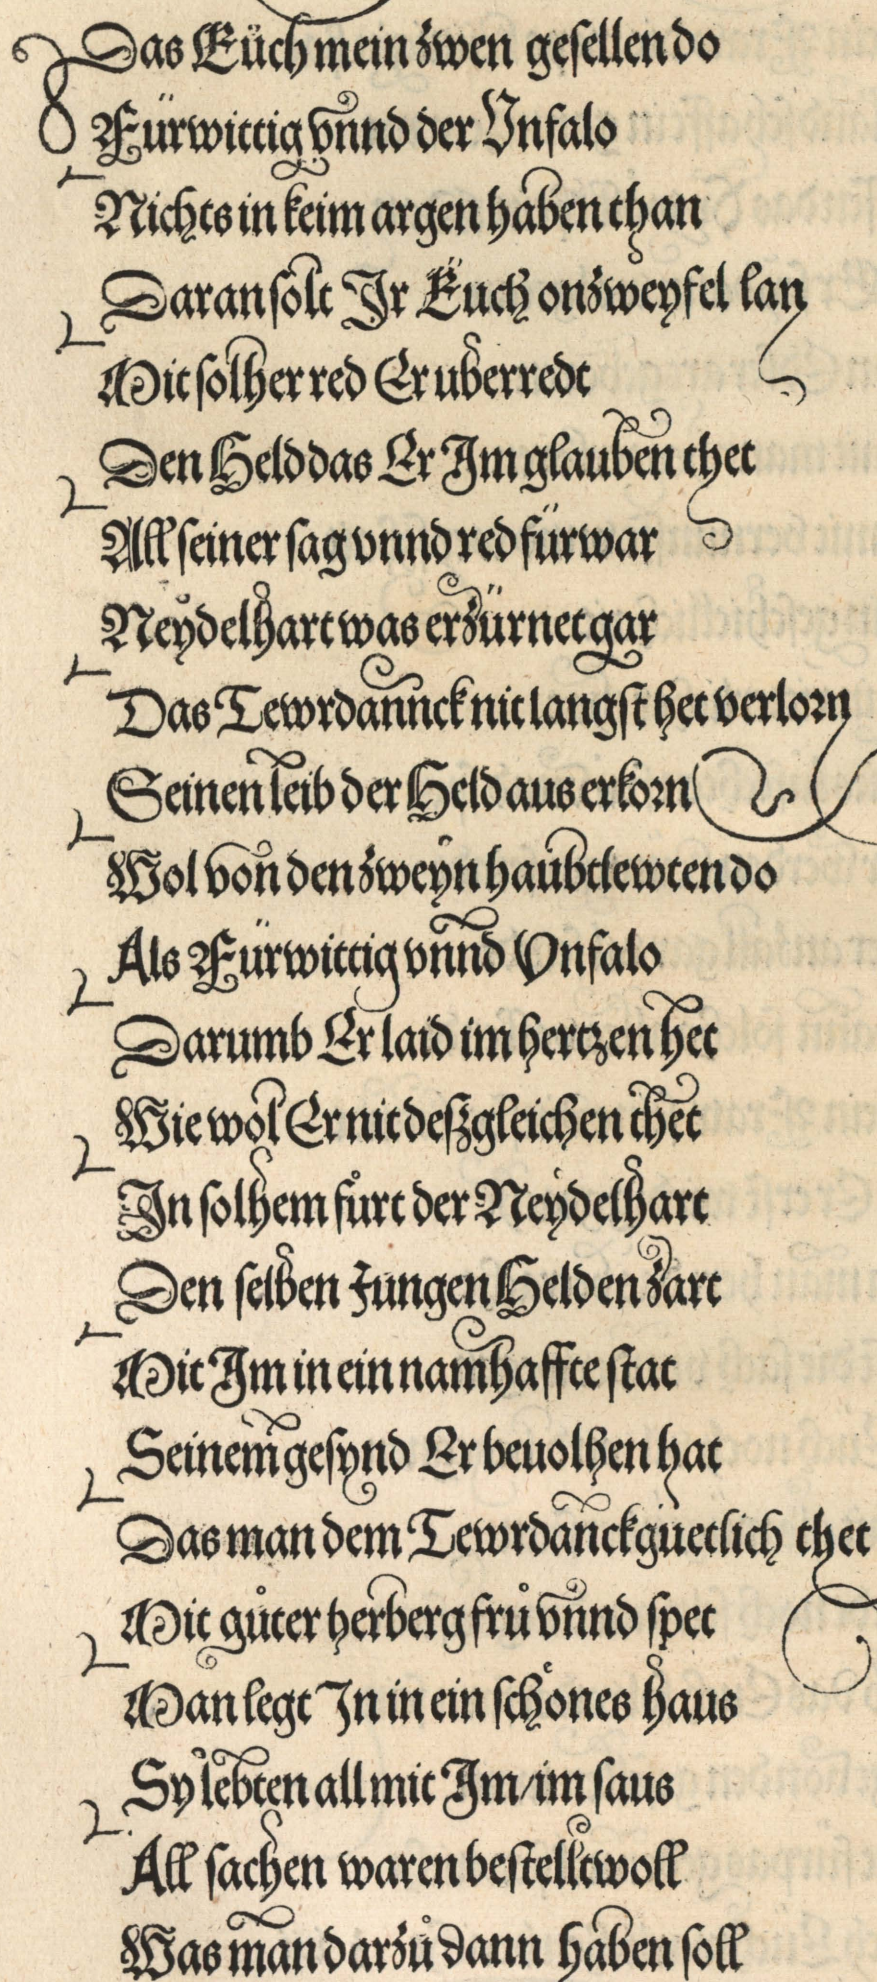 Das Eüch mein zwen gesellen do
Fürwittig vnnd der Vnfalo
Nichts in keim argen haben than
Daran solt Ir Euch on zweyfel lan
Mit solher red Er uberredt
Den Held das Er Im glauben thet
All seiner sag vnnd red fürwar
Neydelhart was erzürnet gar
Das Tewrdannck nit langst het verlorn
Seinen leib der Held aus erkorn
Wol von den zweyn haubtlewten do
Als Fürwittig vnnd Vnfalo
Darumb Er laid im hertzen het
Wie wol Er nit deßgleichen thet
In solhem fůrt der Neydelhart
Den selben Jungen Helden zart
Mit Im in ein namhaffte stat
Seinem gesynd Er beuolhen hat
Das man dem Tewrdanck güetlich thet
Mit gůter herberg frů vnnd spet
Man legt In in ein schönes haus
Sy lebten all mit Im/im saus
All sachen waren bestellt woll
Was man darzů dann haben soll